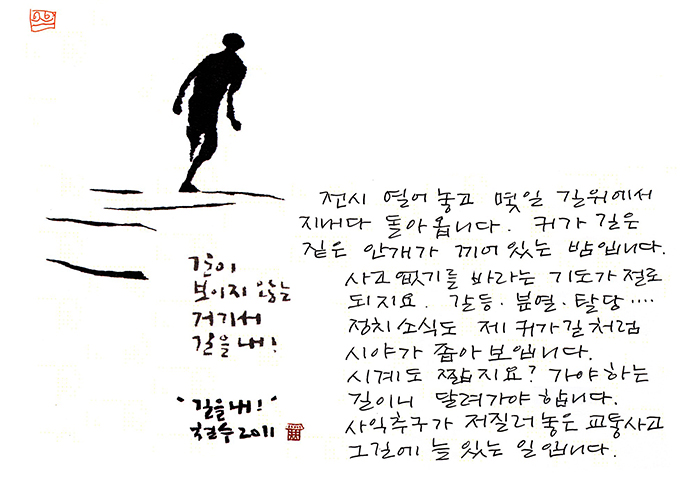 길이
보이지 않는
거기서
길을 내!
"길을 내!"
철수 2011
전시 열어놓고 몇일 길위에서
지내다 돌아옵니다. 귀가길은
짙은 안개가 끼어있는 밤입니다.
사고 없기를 바라는 기도가 절로
되지요. 갈등·분열·탈당····
정치소식도 제 귀가길처럼
시야가 좁아 보입니다.
시계도 짧지요? 가야하는
길이니 달려가야 합니다.
사익추구가 저질러 놓은 교통사고
그길에 늘 있는 일입니다.